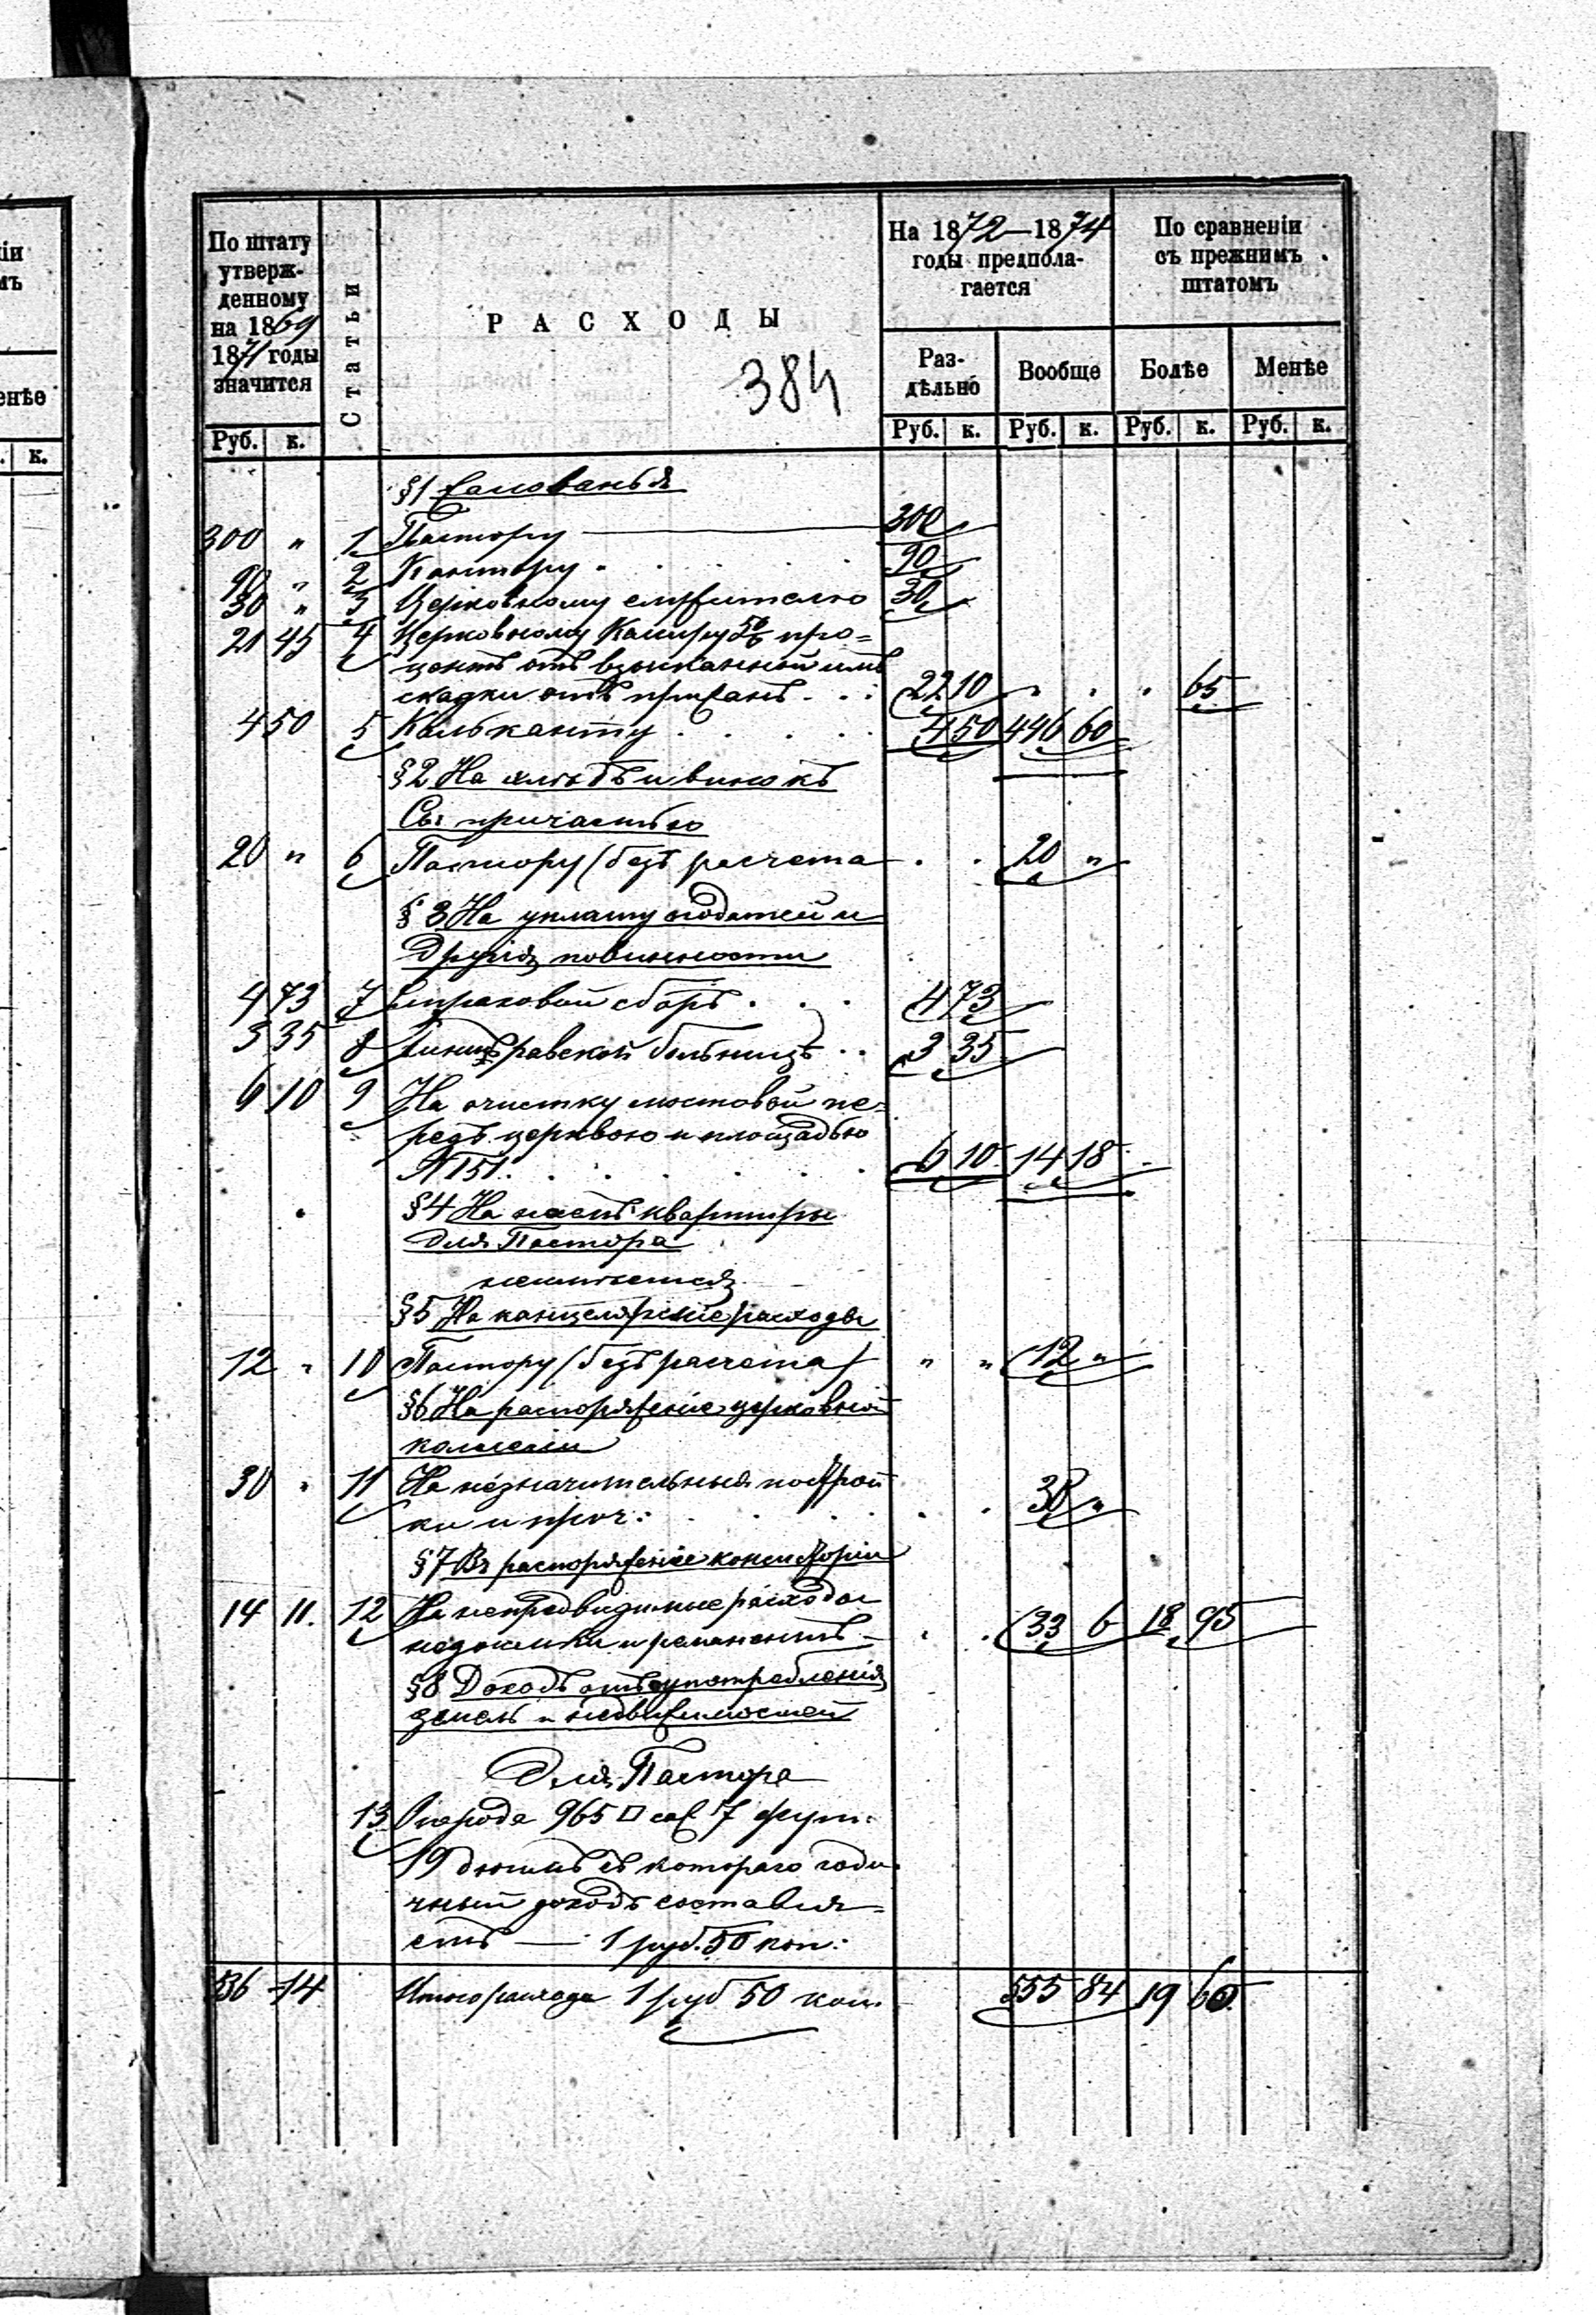 ніи
мъ
енѣе
к.
По штату утверж-
денному
на 1869
1871 годы
значится
Руб. к.
Статьи
РАСХОДЫ
384
На 1872—1874
годы предпола-
гается
Раз-
дѣльно
Вообще
Руб. к. Руб. к.
По сравненію
съ прежнимъ
штатомъ
Болѣе
Менѣе
Руб. к. Руб. к.
§1 Жалованья
300 " 1 Пастору 300
90 " 2 Кантору 90
30 " 3 Церковному служителю 30
21 45 4 Церковному Кассиру 5% про=
центъ отъ взысканной имъ
складки отъ прихожанъ 22 10 65
4 50 5 Кальканту 4 50 446 60
§2 На хлѣбъ и вино къ
Св. причастью
20 " 6 Пастору (безъ расчета 20 "
§3 На уплату податей и
другія повинности
4 73 7 Страховой сборъ 4 73
3 35 8 больницѣ 3 35
6 10 9 На очистку мостовой пе=
редъ церквою и площадью
N 151. 6 10 14 18
§4 На наемъ квартиры
для Пастора
неимѣется
§5 На канцелярскіе расходы
12 " 10 Пастору (безъ расчета) " " 12 "
§6 На распоряженіе церковной
коллегіи
30 " 11 На незначительныя построй
ки и проч: 30 "
§7 Въ распоряженіе консисторіи
14 11. 12 На непредвидимые расходы
недоимки и ремонентъ 33 6 18 95
§8 Доходъ отъ употребленія
земель и недвижимостей
Для Пастора
13 Огорода 965 □ саж 7 фут:
19 дюймъ съ котораго годи
чный доходъ составля=
етъ — 1 руб. 50 коп:
536 14 Итого расхода 1 руб 50 коп. 555 84 19 60